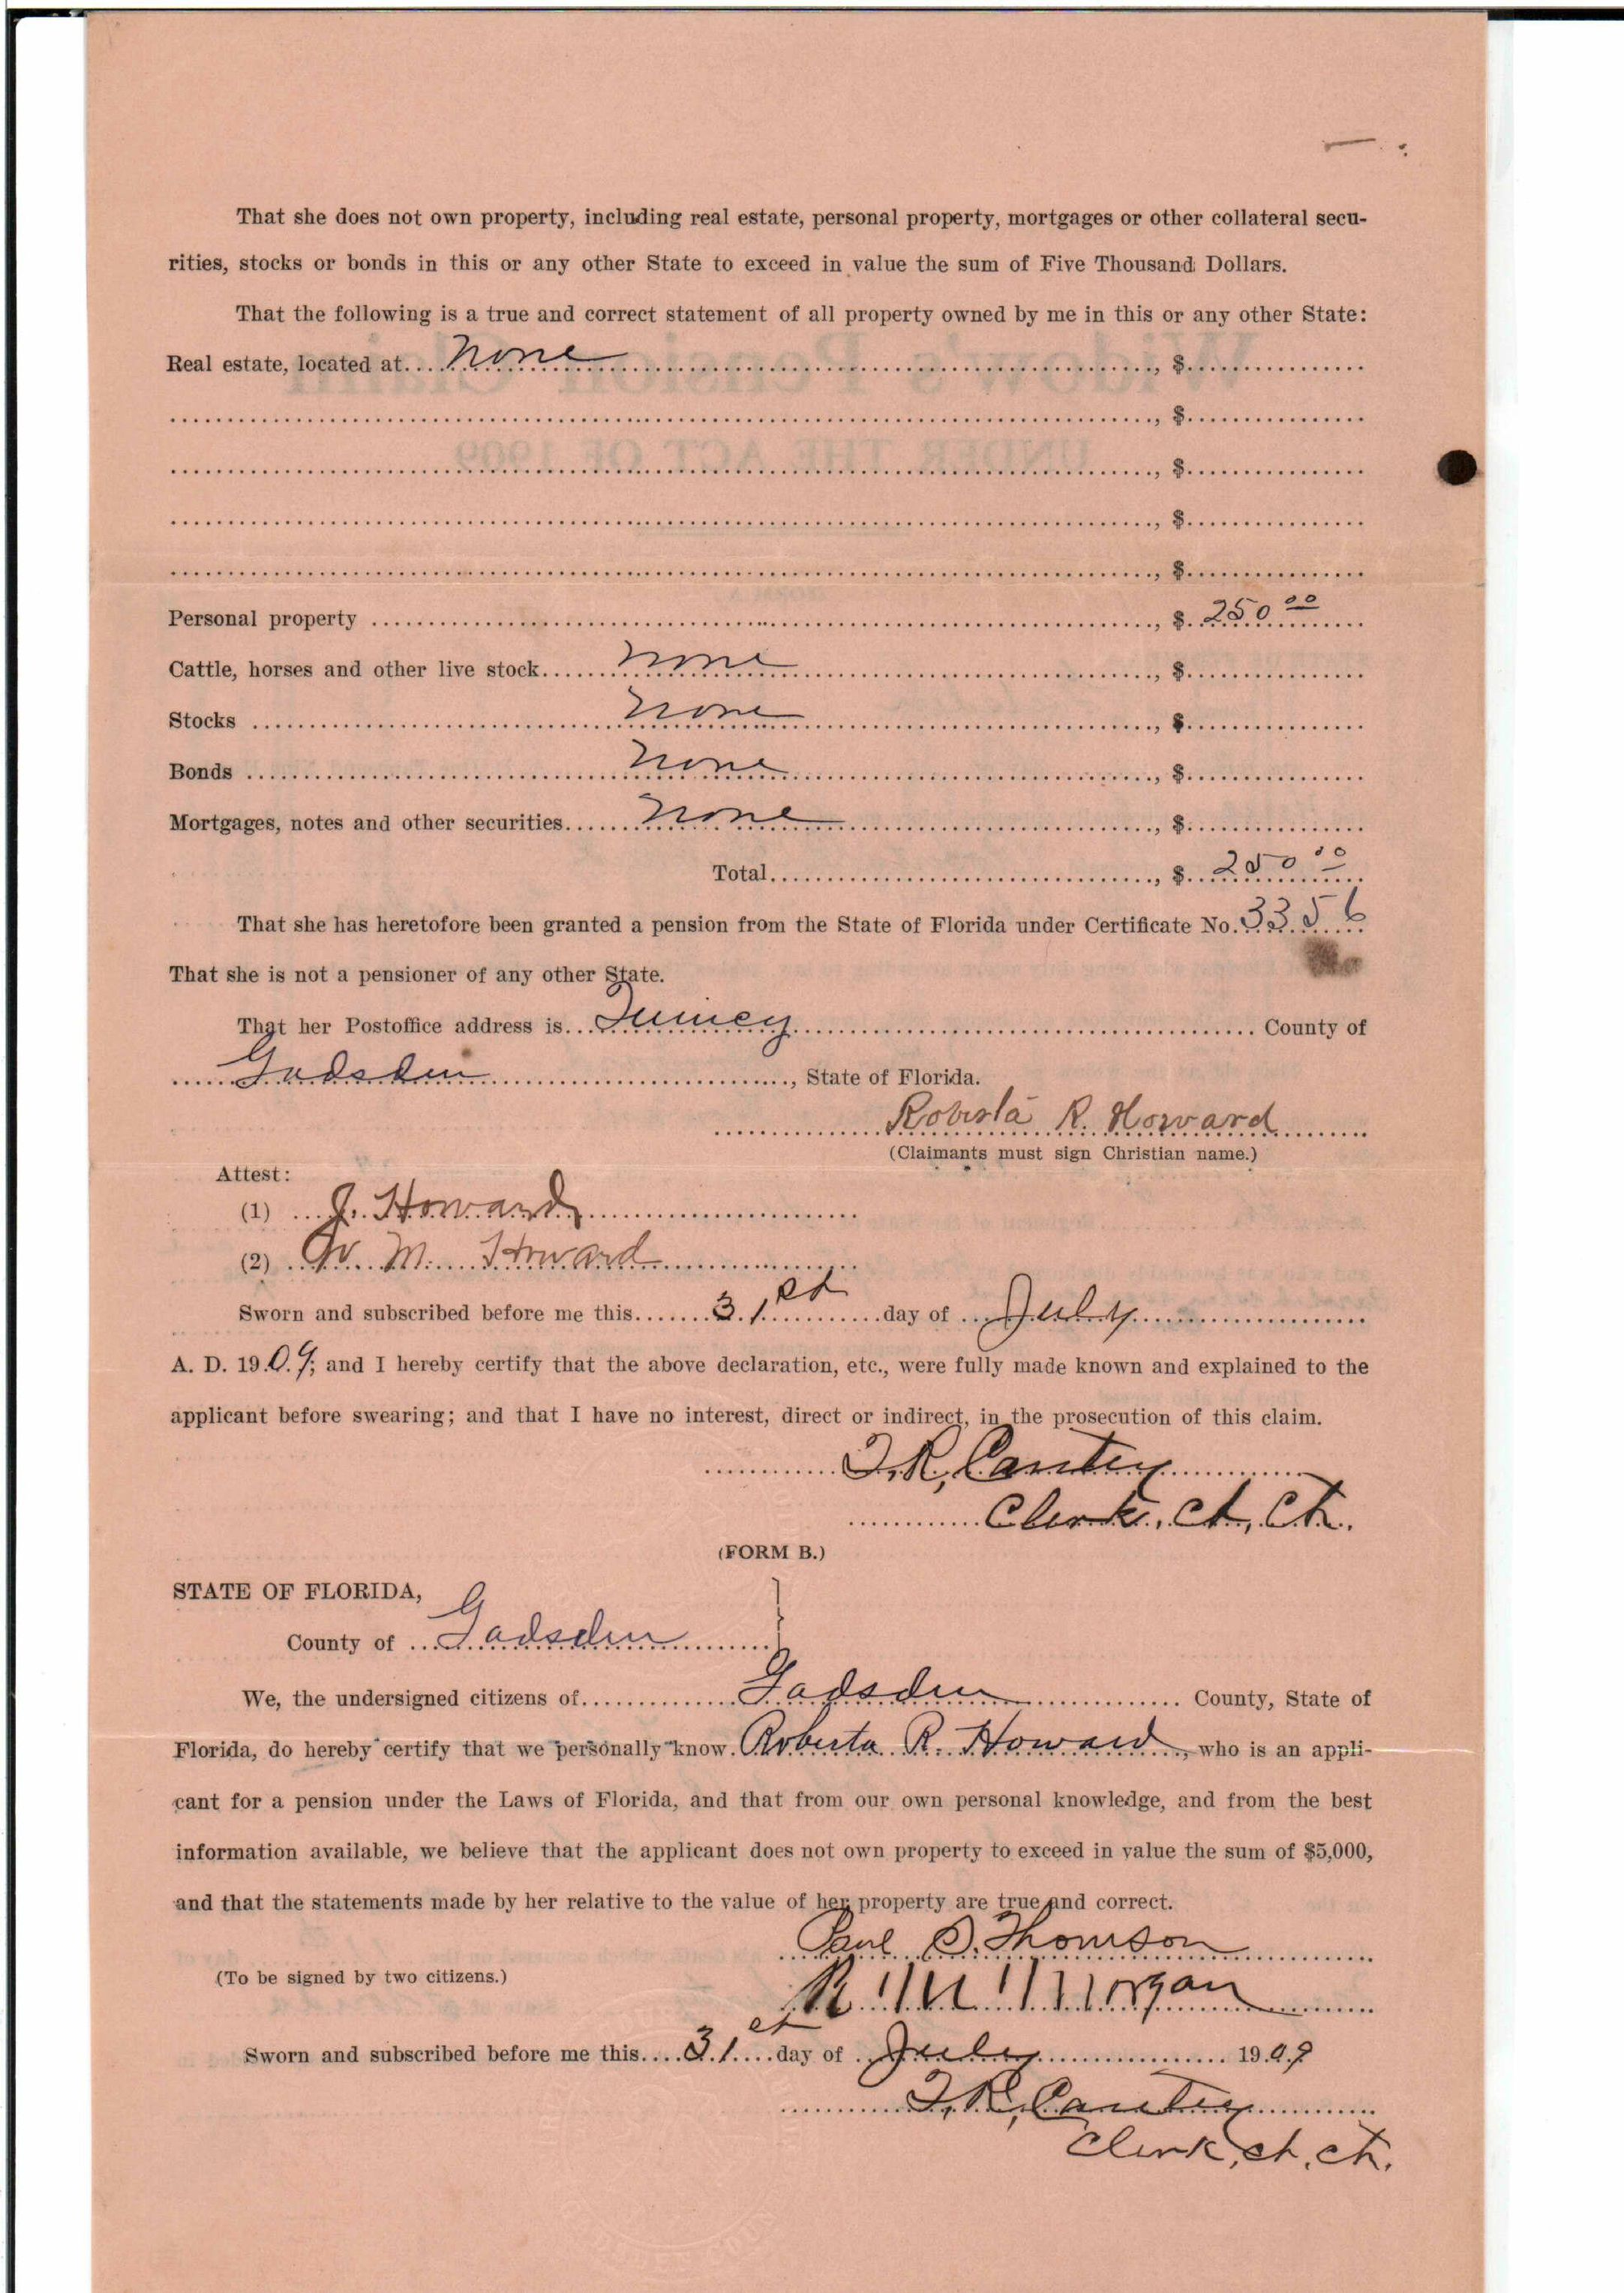 That she does not own property, including real estate, personal property, mortgages or other collateral secu-
rities, stocks or bonds in this or any other State to exceed in value the sum of Five Thousand Dollars.
That the following is a true and correct statement of all property owned by me in this or any other State:
Real estate, located at.... none ...., $....
...., $....
...., $....
...., $....
...., $....
Personal property ...., $. 250 00
Cattle, horses and other live stock.... none ...., $....
Stocks .... none ...., $....
Bonds .... none ...., $....
Mortgages, notes and other securities.... none ...., $....
Total...., $.. 250 00
That she has heretofore been granted a pension from the State of Florida under Certificate No. 3356
That she is not a pensioner of any other State.
That her Postoffice address is... Quincy .... County of
.... Gadsden ...., State of Florida.
Roberta R. Howard
(Claimants must sign Christian name.)
Attest:
(1) ... J. Howard
(2) ... W. M. Howard
Sworn and subscribed before me this.... 31st ....day of .... July
A. D. 19.09; and I hereby certify that the above declaration, etc., were fully made known and explained to the
applicant before swearing; and that I have no interest, direct or indirect, in the prosecution of this claim.
T. R, Cantey
Clerk, Ct, Ct.
(FORM B.)
STATE OF FLORIDA,
County of ... Gadsden
We, the undersigned citizens of.... Gadsden .... County, State of
Florida, do hereby certify that we personally know. Roberta R. Howard, who is an appli-
cant for a pension under the Laws of Florida, and that from our own personal knowledge, and from the best
information available, we believe that the applicant does not own property to exceed in value the sum of $5,000,
and that the statements made by her relative to the value of her property are true and correct.
Paul Thomson
(To be signed by two citizens.)
R. Morgan
Sworn and subscribed before me this.... 31st ....day of .. July .... 19.09
T. R, Cantey
Clerk, ct. ct.